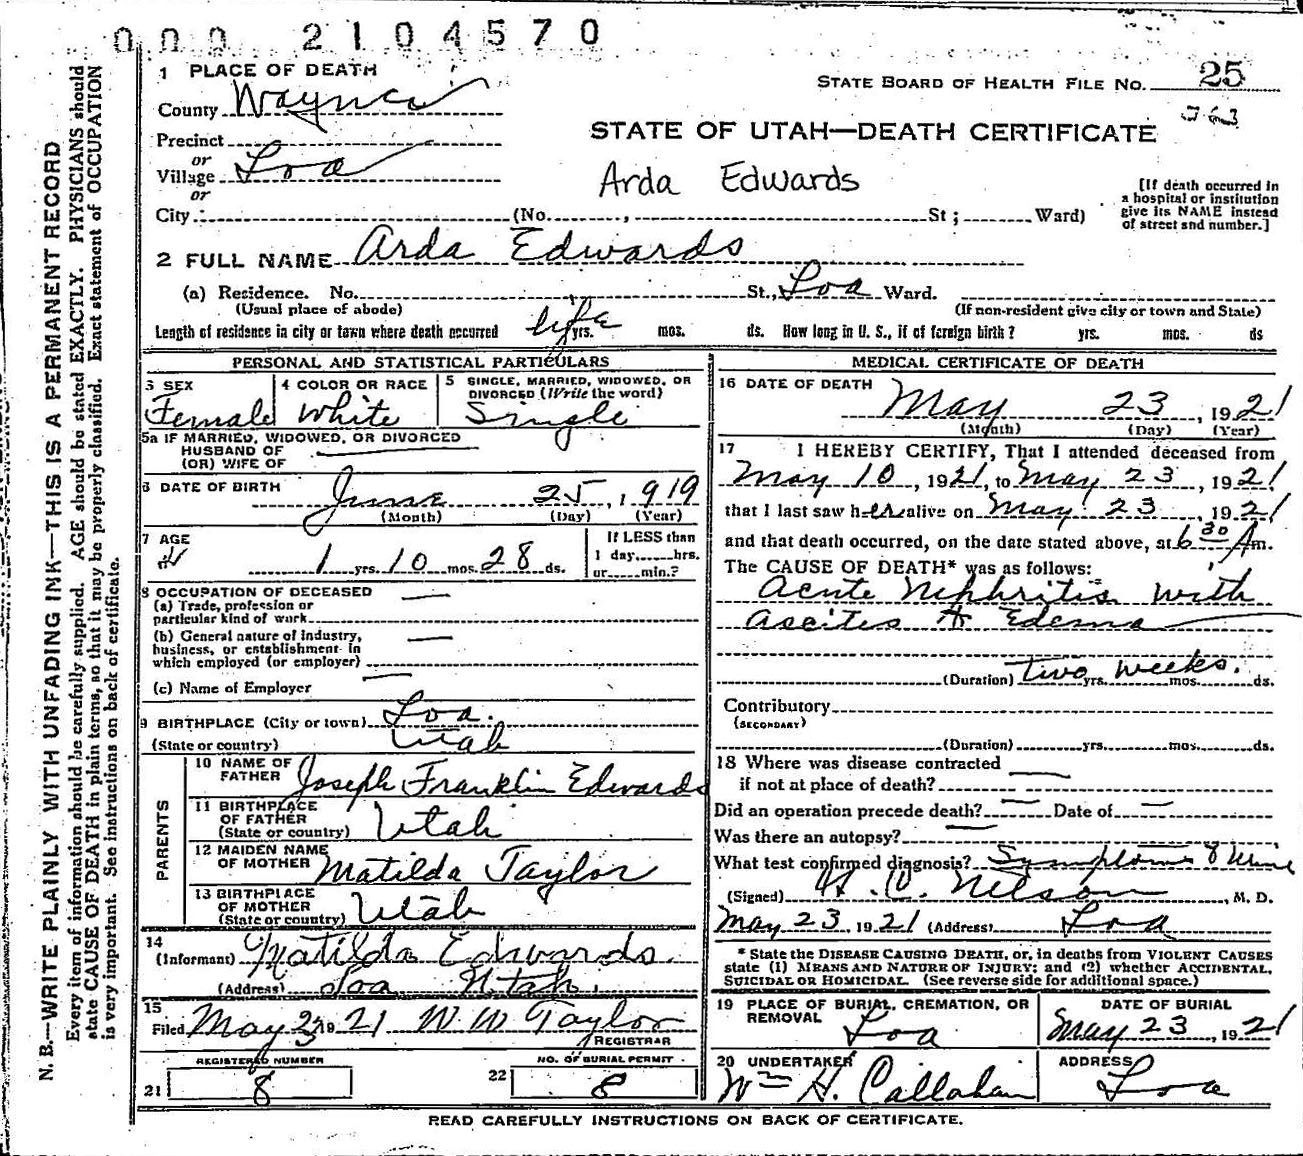 000 2104570
1 PLACE OF DEATH
STATE BOARD OF HEALTH FILE NO. 25
County Wayne
363
Precinct
STATE OF UTAH—DEATH CERTIFICATE
or
Village Loa
Arda Edwards
or
City (No. , St; Ward)
[If death occurred in a hospital or institution give its NAME instead of street and number.]
2 FULL NAME Arda Edwards
(a) Residence. No. St., Loa Ward.
(Usual place of abode) (If non-resident give city or town and State)
Length of residence in city or town where death occurred life yrs. mos. ds. How long in U. S., if of foreign birth? yrs. mos. ds
PERSONAL AND STATISTICAL PARTICULARS
3 SEX Female
4 COLOR OR RACE White
5 SINGLE, MARRIED, WIDOWED, OR DIVORCED (Write the word) Single
5a IF MARRIED, WIDOWED, OR DIVORCED
HUSBAND OF
(OR) WIFE OF
6 DATE OF BIRTH June 25, 1919
(Month) (Day) (Year)
7 AGE
1 yrs. 10 mos. 28 ds.
If LESS than
1 day hrs.
or min.?
8 OCCUPATION OF DECEASED
(a) Trade, profession or
particular kind of work
(b) General nature of industry,
business, or establishment in
which employed (or employer)
(c) Name of Employer
9 BIRTHPLACE (City or town) Loa.
(State or country) Utah
PARENTS
10 NAME OF FATHER Joseph Franklin Edwards
11 BIRTHPLACE OF FATHER (State or country) Utah
12 MAIDEN NAME OF MOTHER Matilda Taylor
13 BIRTHPLACE OF MOTHER (State or country) Utah
14
(Informant) Matilda Edwards.
(Address) Loa Utah.
15
Filed May 23 1921 W W Taylor
REGISTRAR
REGISTERED NUMBER
21 8
NO. OF BURIAL PERMIT
22 8
MEDICAL CERTIFICATE OF DEATH
16 DATE OF DEATH
May 23, 1921
(Month) (Day) (Year)
17 I HEREBY CERTIFY, That I attended deceased from
May 10, 1921, to May 23, 1921
that I last saw her alive on May 23, 1921
and that death occurred, on the date stated above, at 6 30 Am.
The CAUSE OF DEATH* was as follows:
Acute Nephritis with
ascites & Edema
(Duration) two weeks. yrs. mos. ds.
Contributory
(SECONDARY)
(Duration) yrs. mos. ds.
18 Where was disease contracted
if not at place of death?
Did an operation precede death? Date of
Was there an autopsy?
What test confirmed diagnosis? Symptoms & Urine
(Signed) H. C. Nelson, M. D.
May 23, 1921 (Address) Loa
* State the DISEASE CAUSING DEATH, or, in deaths from VIOLENT CAUSES
state (1) MEANS AND NATURE OF INJURY; and (2) whether ACCIDENTAL,
SUICIDAL OR HOMICIDAL. (See reverse side for additional space.)
19 PLACE OF BURIAL, CREMATION, OR REMOVAL Loa
DATE OF BURIAL May 23, 1921
20 UNDERTAKER Wm H. Callahan
ADDRESS Loa
READ CAREFULLY INSTRUCTIONS ON BACK OF CERTIFICATE.
N. B.—WRITE PLAINLY WITH UNFADING INK—THIS IS A PERMANENT RECORD
Every item of information should be carefully supplied. AGE should be stated EXACTLY. PHYSICIANS should
state CAUSE OF DEATH in plain terms, so that it may be properly classified. Exact statement of OCCUPATION
is very important. See instructions on back of certificate.